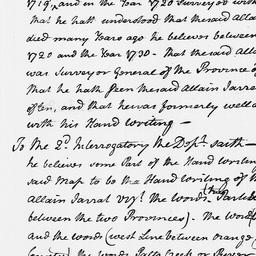 1719, and in the Year 1720 Surveyed with
that he hath understood that the said Allai
died many Years ago he believes between
1720 and the Year 1730 - that the said Alla
was Surveyor General of the Province o
that he hath seen the said Allain Jarrat
often, and that he was formerly well a
with his Hand Writing -
To the 2d. Interrogatory the Dept. saith -
he believes some Part of the Hand Writin
said Map to be the Hand Writing of
Allain Jarrat vizt. the Words (
between the two Provinces). the Word
and the words (west Line between orange
the words Creek or River